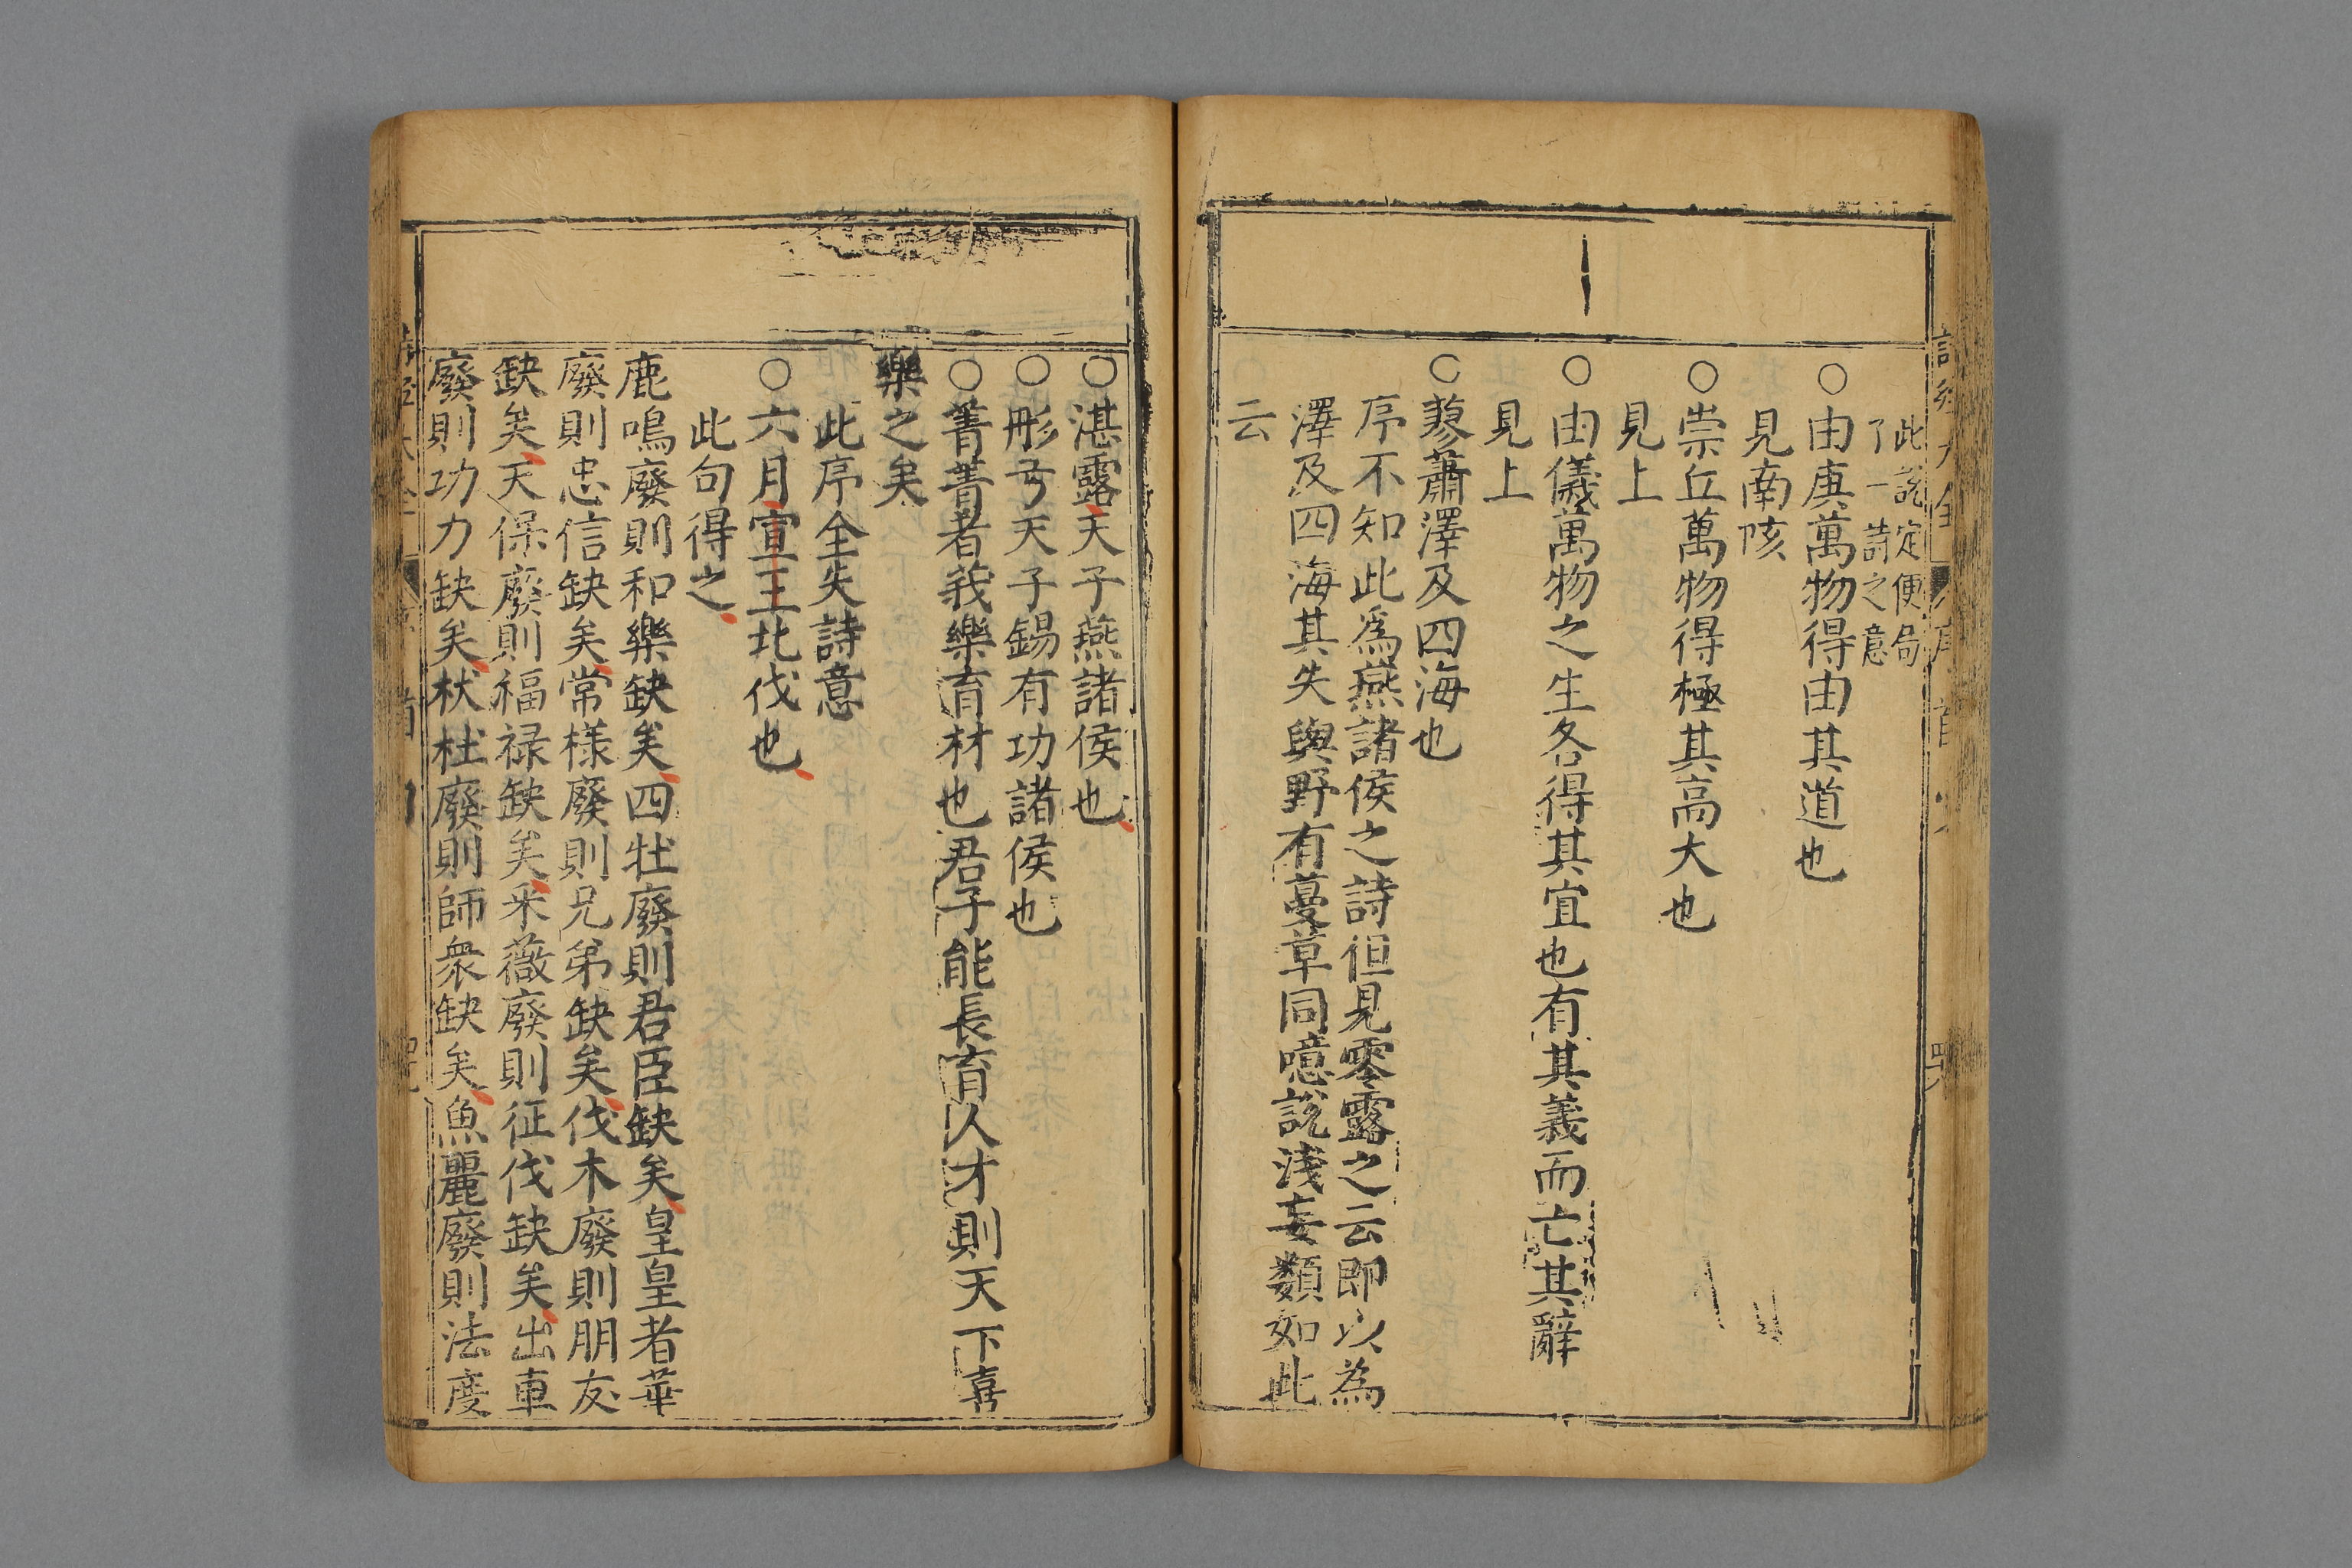 此說定便局
了一詩之意
○由庚萬物得由其道也
見南陔
○崇丘萬物得極其高大也
見上
○由儀萬物之生各得其宜也有其義而亡其辭
見上
○蓼蕭澤及四海也
序不知此爲燕諸侯之詩但見零露之云即以為
澤及四海其失與野有蔓草同噫說淺妄類如此
云
○湛露天子燕諸侯也
○彤弓天子錫有功諸侯也
○菁菁者莪樂育材也君子能長育人才則天下喜
樂之矣
此序全失詩意
○六月宣王北伐也
此句得之
鹿鳴廢則和樂缺矣四牡廢則君臣缺矣皇皇者華
廢則忠信缺矣常棣廢則兄弟缺矣伐木廢則朋友
缺矣天保廢則福禄缺矣采薇廢則征伐缺矣出車
廢則功力缺矣杕杜廢則師衆缺矣魚麗廢則法度